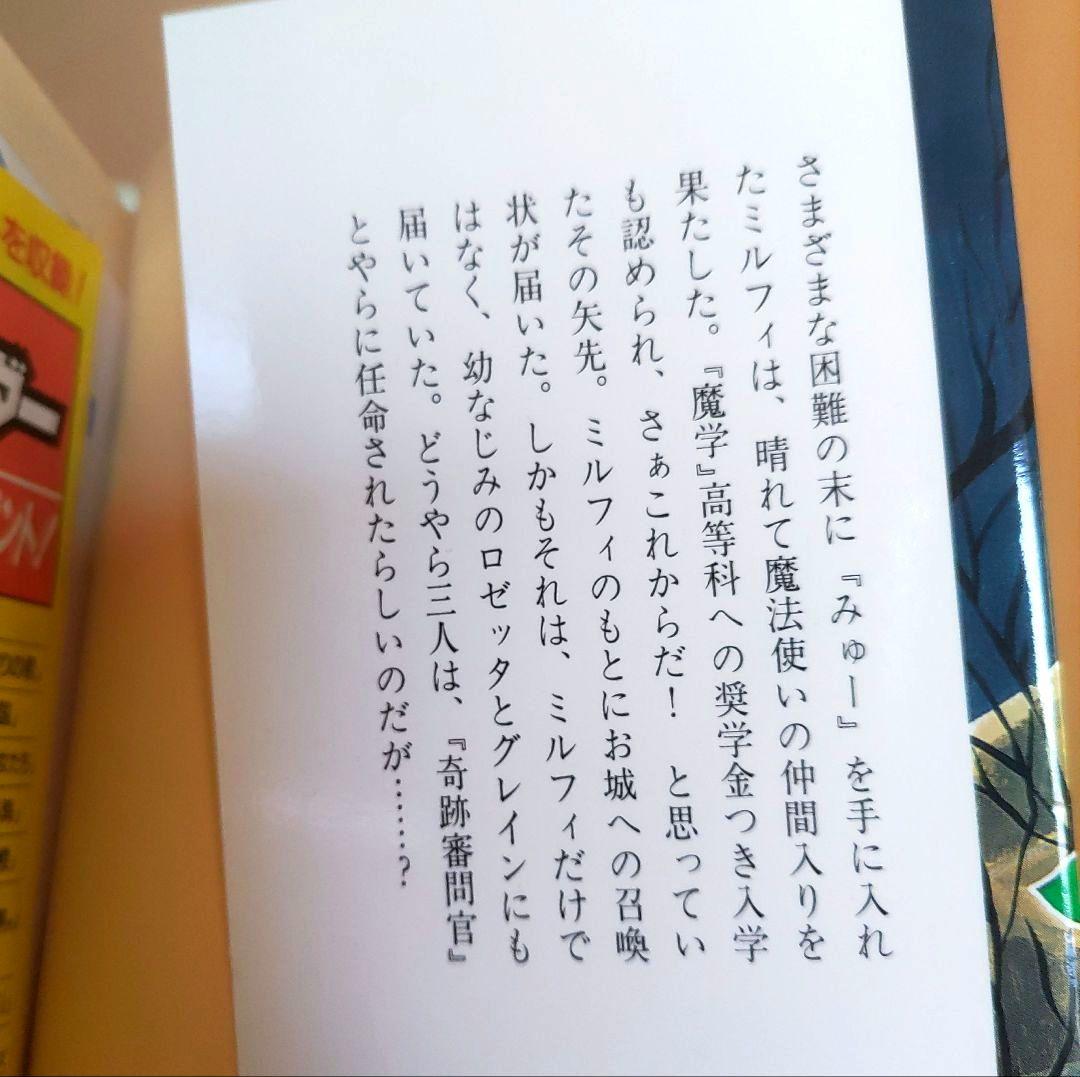 さまざまな困難の末に『みゅー』を手に入れ
たミルフィは、晴れて魔法使いの仲間入りを
果たした。『魔学』高等科への奨学金つき入学
も認められ、さぁこれからだ! と思ってい
たその矢先。ミルフィのもとにお城への召喚
状が届いた。しかもそれは、ミルフィだけで
はなく、幼なじみのロゼッタとグレインにも
届いていた。どうやら三人は、『奇跡審問官』
とやらに任命されたらしいのだが……?
を収録!